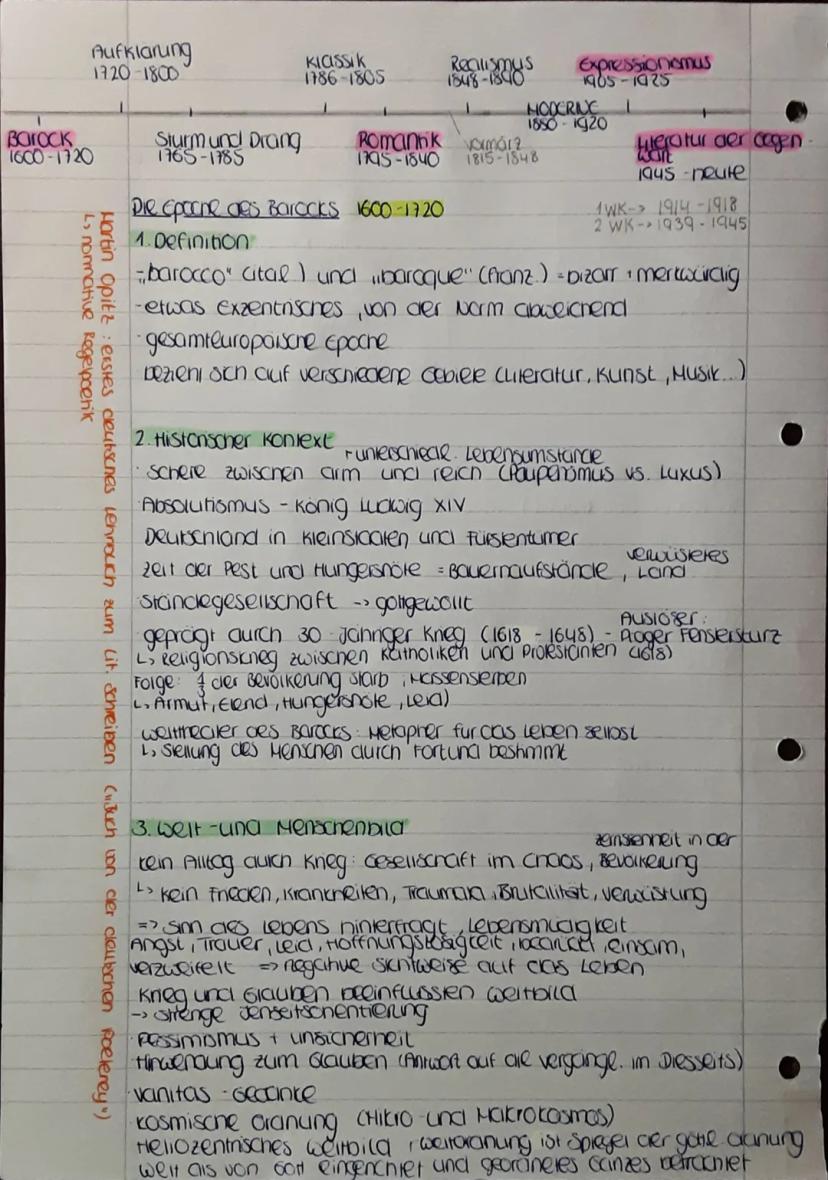 Aufklärung
1720-1800
Klassik
1786-1805
Realismus
1848-1890
Expressionismus
1905-1925
MODERNE
1850-1920
Barock
1600-1720
Sturm und Drang
1765-1785
Romantik
1795-1840
Vormärz
1815-1848
Literatur der Gegen-
wart
1945 -heute
Die Epoche des Barocks 1600-1720
1 WK -> 1914 -1918
2 WK -> 1939 - 1945
1. Definition
-„barocco" (ital.) und „baroque" (franz.) = bizarr, merkwürdig
-etwas Exzentrisches, von der Norm abweichend
· gesamteuropäische Epoche
bezieht sich auf verschiedene Gebiete (Literatur, Kunst, Musik...)
2. Historischer Kontext
unterschiedl. Lebensumstände
· Schere zwischen arm und reich (Pauperismus vs. Luxus)
Absolutismus - König Ludwig XIV
Deutschland in Kleinstaaten und Fürstentümer
Zeit der Pest und Hungersnöte = Bauernaufstände, verwüstetes Land
Ständegesellschaft -> gottgewollt
geprägt durch 30-Jähriger Krieg (1618 - 1648) - Auslöser: Prager Fenstersturz
↳ Religionskrieg zwischen Katholiken und Protestanten (1618)
Folge: 1/3 der Bevölkerung starb, Massensterben
↳ Armut, Elend, Hungersnöte, Leid)
Welttheater des Barocks: Metapher für das Leben selbst
↳ Stellung des Menschen durch Fortuna bestimmt
3. Welt -und Menschenbild
kein Alltag durch Krieg: Gesellschaft im Chaos, Zerrissenheit in der Bevölkerung
↳ Kein Frieden, Krankheiten, Traumata, Brutalität, Verwüstung
=> Sinn des Lebens hinterfragt, Lebensmüdigkeit
Angst, Trauer, Leid, Hoffnungslosigkeit, einsam,
verzweifelt => negative Sichtweise auf das Leben
Krieg und Glauben beeinflussten Weltbild
-> strenge Jenseitsorientierung
Pessimismus + Unsicherheit
Hinwendung zum Glauben (Antwort auf die Vergängl. im Diesseits)
·Vanitas -Gedanke
·Kosmische Ordnung (Mikro -und Makrokosmos)
Heliozentrisches Weltbild, Weltordnung ist Spiegel der göttl. Ordnung
Welt als von Gott eingerichtet und geordnetes Ganzes betrachtet
Martin Opitz: erstes deutsches Lehrbuch zum Lit. Schreiben („Buch von der deutschen Poeterey")
↳ normative Regelpoetik